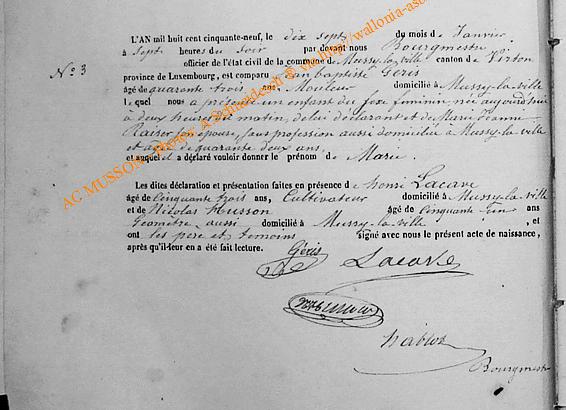 L'AN mil huit cent cinquante-neuf, le dix sept du mois de Janvier
à Sept heures du Soir par devant nous Bourgmestre
officier de l'état civil de la commune de Mussy-la-ville canton de Virton
N° 3
province de Luxembourg, est comparu Jean baptiste Géris
âgé de quarante trois ans, Mouleur domicilié à Mussy-la-ville
lequel nous a présenté un enfant du sexe féminin née aujourd'hui
à deux heures du matin, de lui déclarant et de Marie Jeanne
Raiser son épouse, sans profession aussi domiciliée à Mussy-la-ville
et âgée de quarante deux ans,
et auquel il a déclaré vouloir donner le prénom de Marie.
Les dites déclaration et présentation faites en présence de henri Lacave
âgé de Cinquante trois ans, Cultivateur domicilié à Mussy-la-ville
et de Nicolas Husson âgé de Cinquante un ans
Géomètre aussi domicilié à Mussy-la-ville, et
ont les père et témoins signé avec nous le présent acte de naissance,
après qu'il leur en a été fait lecture.
Géris
Lacave
Bourgmestre
AC MUSSON Photos A Schneider © via http://wallonia-aso